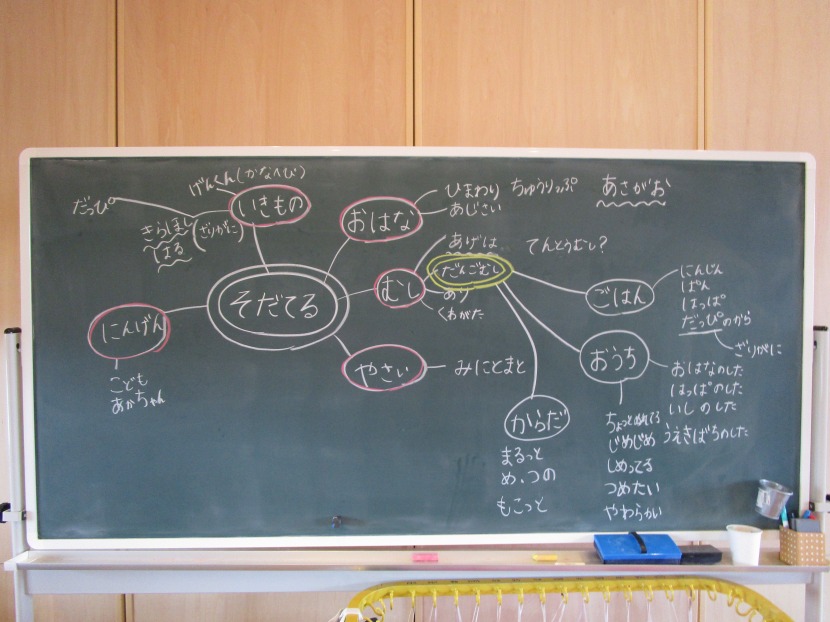 げんくん(かなへび)
だっぴ
いきもの
きらほし
はる
(ざりがに)
おはな
ひまわり
あじさい
ちゅうりっぷ
あさがお
そだてる
むし
あげは
てんとうむし?
だんごむし
あり
くわがた
ごはん
にんじん
ぱん
はっぱ
だっぴのから
ざりがに
にんげん
こども
あかちゃん
やさい
みにとまと
おうち
おはなのした
はっぱのした
いしのした
うえきばちのした
ちょっとぬれてる
じめじめ
しめってる
つめたい
やわらかい
からだ
まるっと
め、つの
もこっと